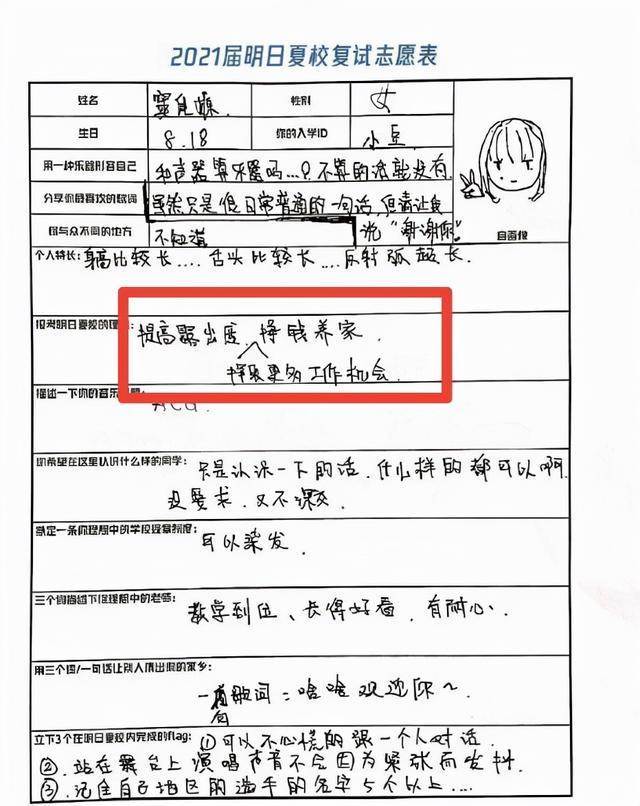 2021届明日夏校复试志愿表
姓名 蜜儿娘 性别 女
生日 8.18 你的入学ID 小豆
用一种乐器形容自己 和声器算乐器吗....?不算的话就没有.
分享你最喜欢的歌词 虽然只是很日常普通的一句话,但请让我说“谢谢你”
你与众不同的地方 不知道
自画像
个人特长: 身高比较长....舌头比较长....反射弧超长.
报考明日夏校的理由: 提高露出度、挣钱养家.
择取更多工作机会.
描述一下你的音乐 : ACG.
你希望在这里认识什么样的同学: 只是认识一下的话,什么样的都可以啊.
没要求,又不深交
制定一条你理想中的学校规章制度:
可以染发.
三个词描述下你理想中的老师:
教学到位、长得好看,有耐心、
用三个词/一句话让别人猜出你的家乡:
一首歌词:啥啥欢迎你~
有
立下3个在明日夏校内完成的flag: ①可以不心慌的跟一个人对话
②.站在舞台上演唱声音不会因为紧张而发抖.
③.记住自己地区的选手的名字5个以上....